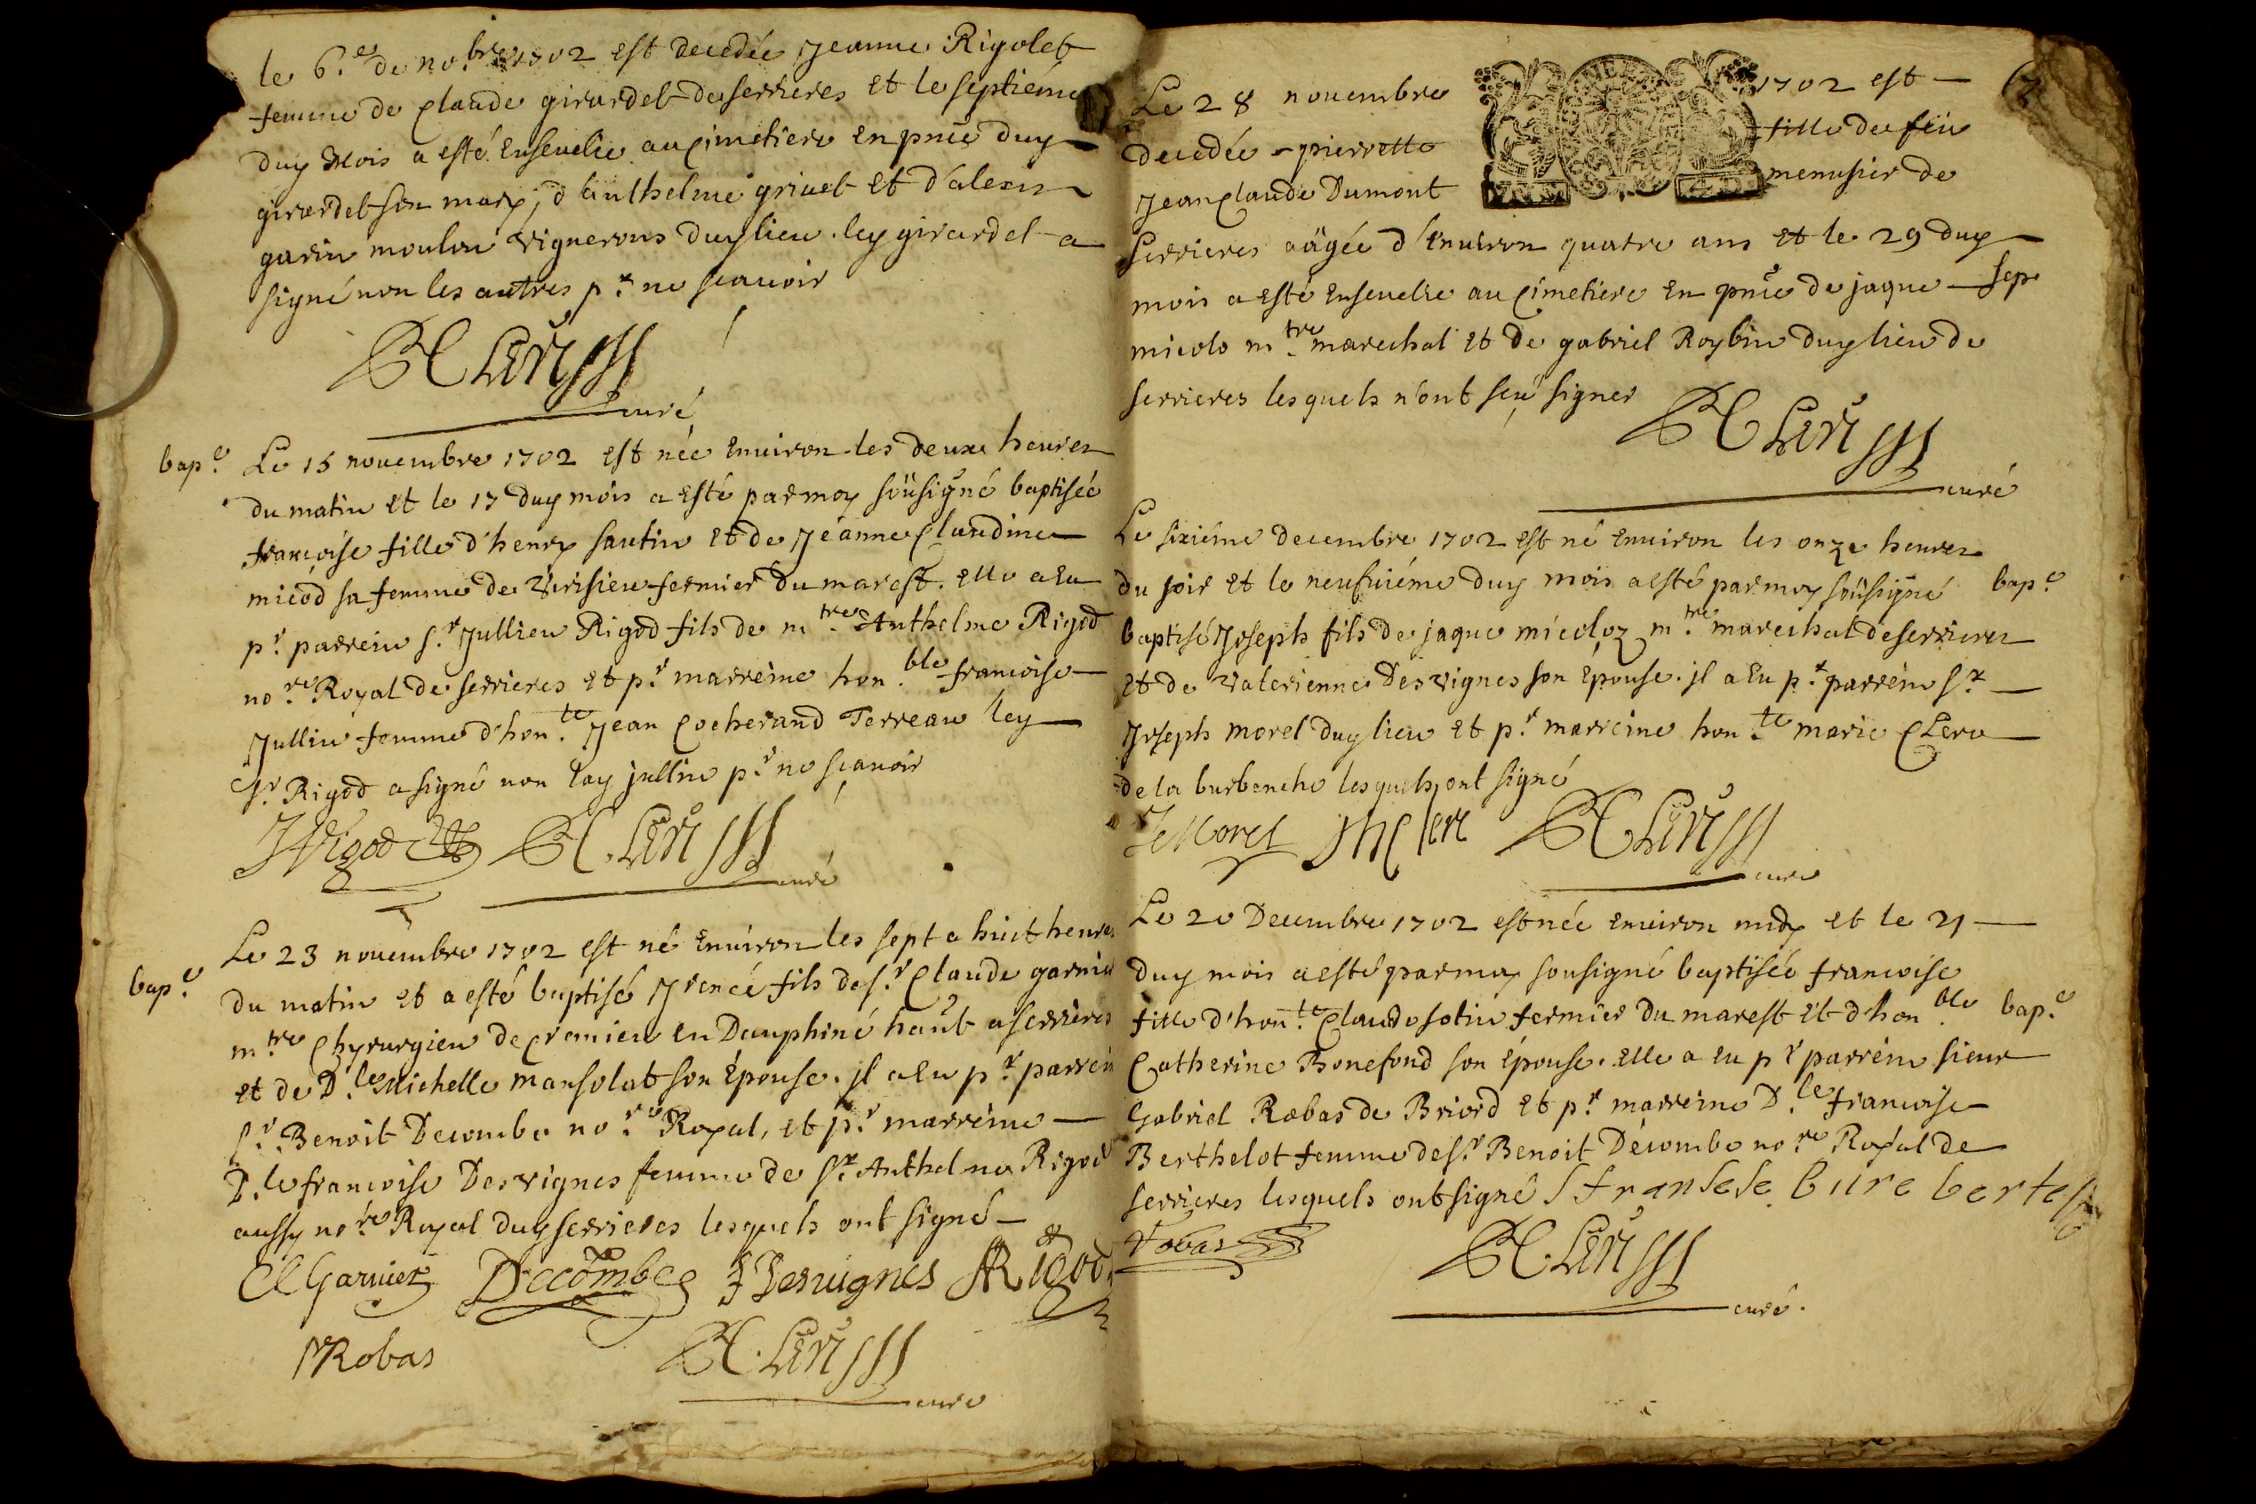 le 6.e de no.bre 1702 est decedée Jeanne Rigolet
femme de Claude girardet de serrieres et le septiéme
duy mois a esté ensevelie au cimetiere en pnce duy
girardet son mary, d'anthelme grivet et d'alexis
garin moulon vignerons duy lieu. ley girardet a
signé non les autres pr ne scavoir
curé
bap.e Le 15 novembre 1702 est née environ les deux heures
du matin et le 17 duy mois a esté par moy soüsigné baptisée
françoise fille d'henry sautin et de Jeanne Claudine
micod sa femme de virisieu fermier du marest. elle a eu
pr. parrein sr. Jullien Rigod fils de m.tre Anthelme Rigod
no.re Royal de serrieres et pr. marreine hon.ble francoise
Jullin femme d'hon.te Jean Cocherand Terreau ley
sr. Rigod a signé non lay jullin pr. ne scavoir
JRigod
curé
bap.e Le 23 novembre 1702 est né environ les sept a huit heures
du matin et a esté baptisé Irenée fils de sr. Claude garnier
m.tre Chyrurgien de cremieu en Dauphiné hañt a serrieres
et de D.le Michelle mansolat son épouse. il a eu pr. parrein
sr. Benoit Decombe no.re Royal, et pr. marreine
D.le francoise Desvignes femme de sr. Anthelme Rigod
aussy no.re Royal duy serrieres lesquels ont signé
Cl Garnier Decombe f Desvignes ARigod
Robas
curé
Le 28 novembre 1702 est
decedée pierrette fille de feu
Jean Claude Dumont menusier de
serrieres aâgée d'environ quatre ans et le 29 duy
mois a esté ensevelie au cimetiere en pnce de jaque sep
micolo m.tre marechal et de gabriel Roybin duy lieu de
serrieres lesquels n'ont sçu signer
curé
Le sixiéme decembre 1702 est né environ les onze heures
du soir et le neufviéme duy mois a esté par moy soüsigné bap.e
baptisé Joseph fils de jaque micoloz m.tre marechal de serrieres
et de valerienne Desvignes son épouse. il a eu pr. parrein sr.
Joseph morel duy lieu et pr. marreine hon.te marie Clerc
de la burbanche lesquels ont signé
J Morel M Clerc
curé
Le 20 Decembre 1702 est née environ midy et le 21
duy mois a esté par moy sousigné baptisée francoise
fille d'hon.te Claude sotin fermier du marest et d'hon.ble bap.e
Catherine Bonefond son épouse. elle a eu pr parrein sieur
Gabriel Rabas de Briord et pr. marreine D.le francoise
Berthelot femme de sr. Benoit Decombe no.re Royal de
serrieres lesquels ont signé
curé.